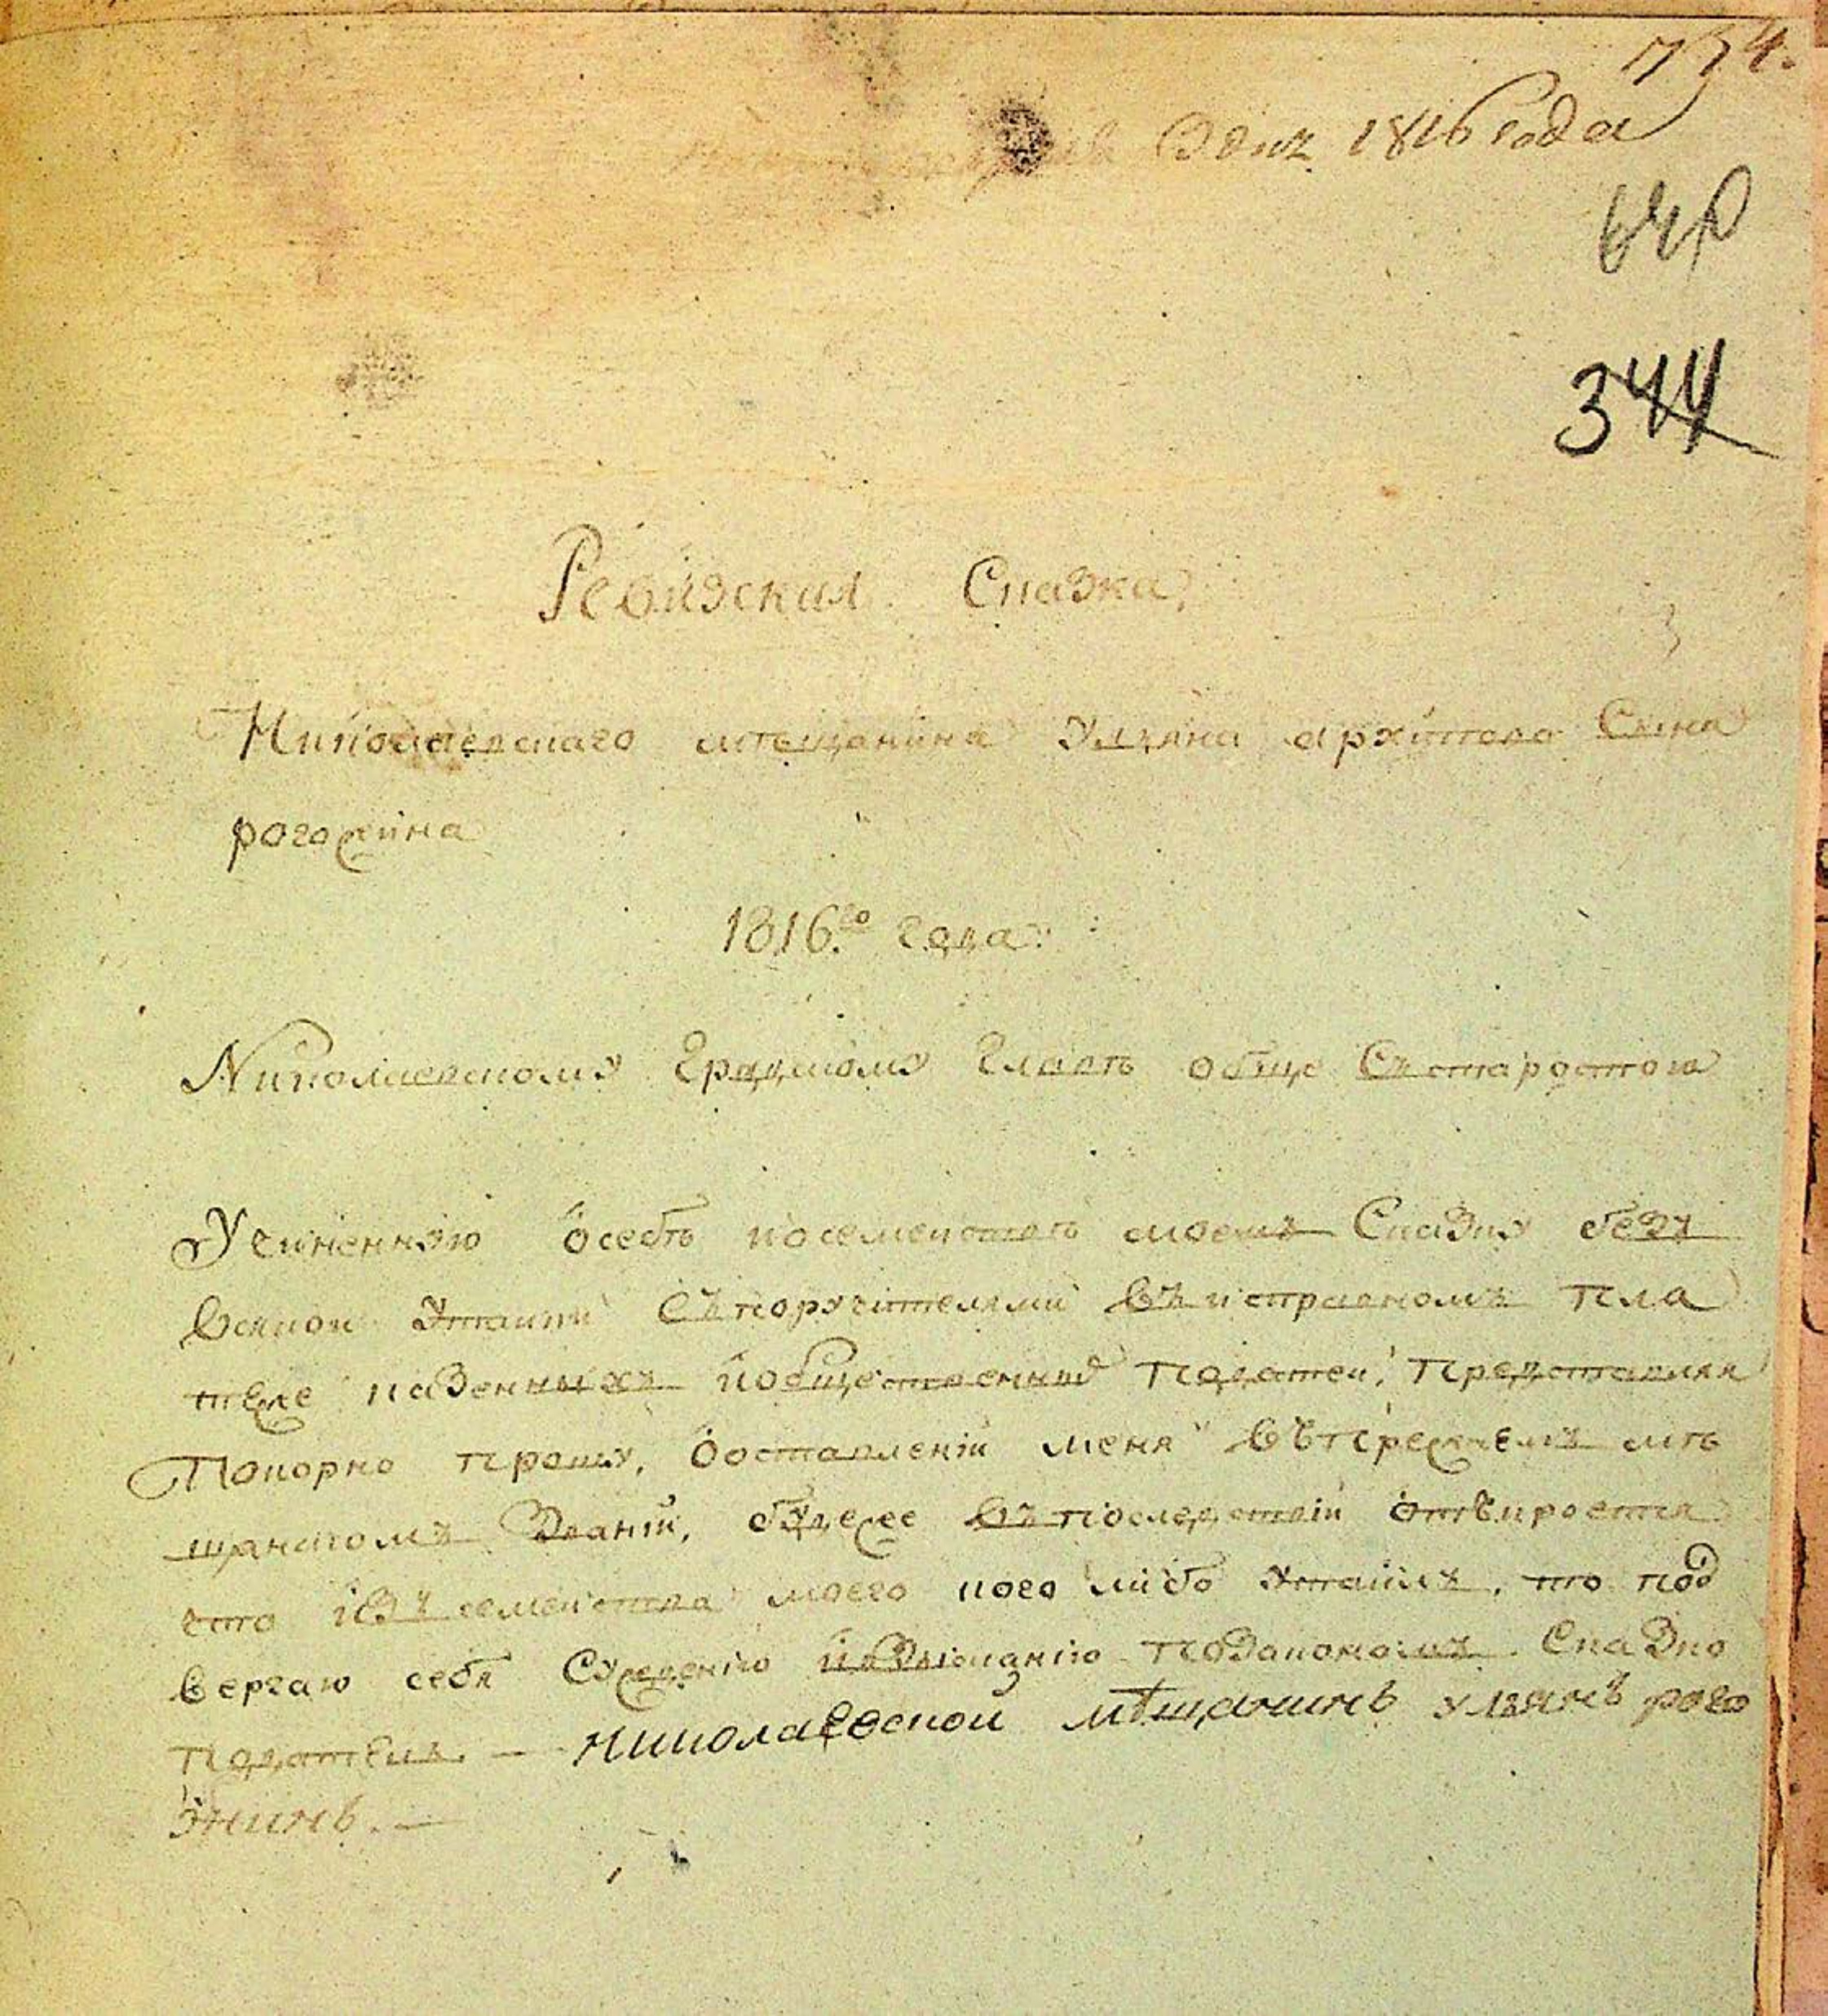 734.
дня 1816 года
344
Ревизская Сказка,
Николаевскаго мещанина Уляна архипова Сына
рогожина
1816го года:
Николаевскому Градскому Главѣ обще Съ старостою
Учиненную осебѣ посемействѣ моемъ Сказку безъ
Всякой Утайки Съ поручителями Въ исправномъ пла
теже казенныхъ иобщественныхъ податей, представляя
Покорно прошу, обоставленіи меня Въ прежнемъ мѣ
щанскомъ Званіи, буде же Въ последствіи откроется
что изъ семейства моего кого либо Утаилъ, то под
вергаю себя Сужденію ивзысканію позакономъ. Сказко
податель. — николаевской мѣщанинъ ульянъ рого
жинъ. —